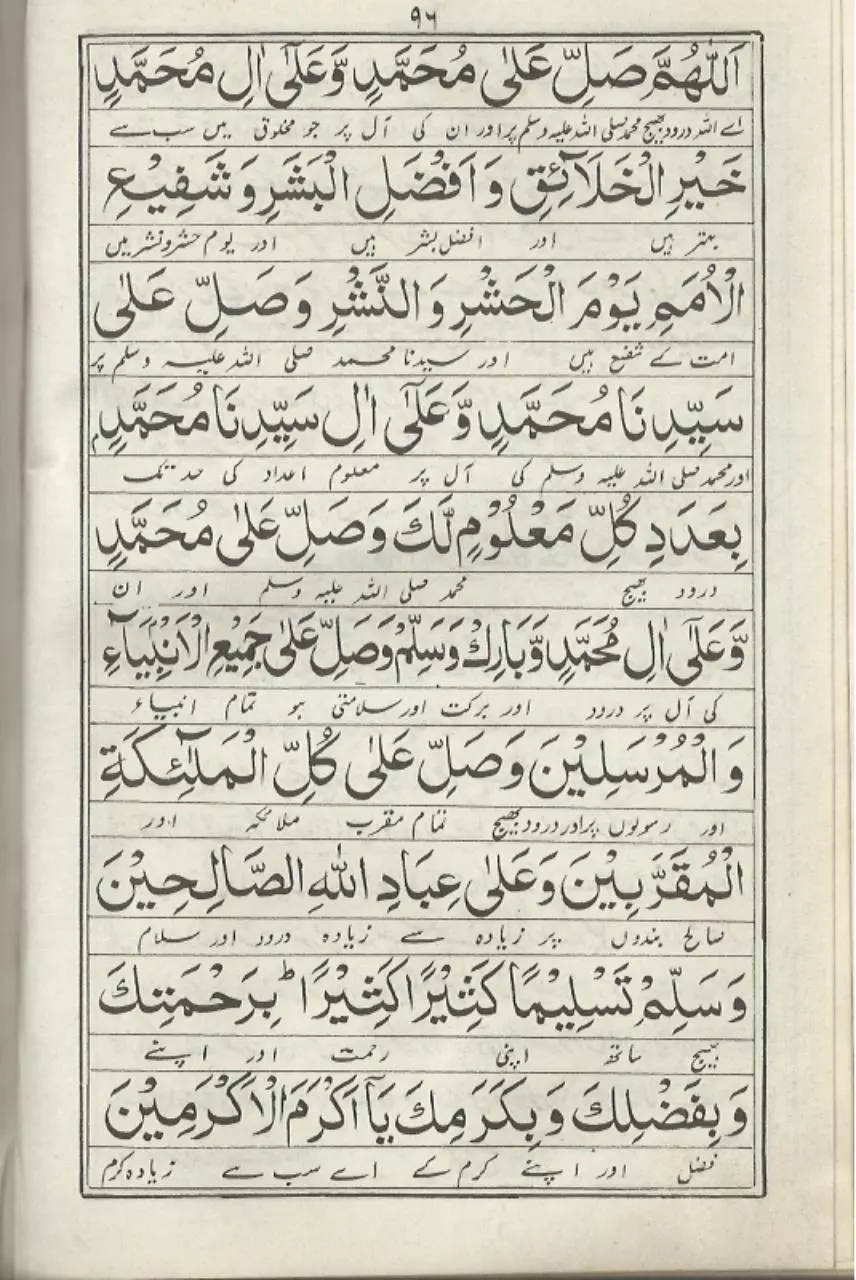 ۹۶
اَللّٰهُمَّ صَلِّ عَلٰى مُحَمَّدٍ وَّعَلٰٓى اٰلِ مُحَمَّدٍ
اے اللہ درود بھیج محمد صلی اللہ علیہ وسلم پر اور ان کی آل پر جو مخلوق میں سب سے
خَيْرِ الْخَلَآئِقِ وَاَفْضَلِ الْبَشَرِ وَشَفِيْعِ
بہتر ہیں اور افضل بشر ہیں اور یوم حشر و نشر میں
الْاُمَمِ يَوْمَ الْحَشْرِ وَالنَّشْرِ وَصَلِّ عَلٰى
امت کے شفیع ہیں اور سیدنا محمد صلی اللہ علیہ وسلم پر
سَيِّدِنَا مُحَمَّدٍ وَّعَلٰٓى اٰلِ سَيِّدِنَا مُحَمَّدٍ
اور محمد صلی اللہ علیہ وسلم کی آل پر معلوم اعداد کی حد تک
بِعَدَدِ كُلِّ مَعْلُوْمٍ لَّكَ وَصَلِّ عَلٰى مُحَمَّدٍ
درود بھیج محمد صلی اللہ علیہ وسلم اور ان
وَّعَلٰٓى اٰلِ مُحَمَّدٍ وَّبَارِكْ وَسَلِّمْ وَصَلِّ عَلٰى جَمِيْعِ الْاَنْبِيَآءِ
کی آل پر درود اور برکت اور سلامتی ہو تمام انبیاء
وَالْمُرْسَلِيْنَ وَصَلِّ عَلٰى كُلِّ الْمَلٰٓئِكَةِ
اور رسولوں پر اور درود بھیج تمام مقرب ملائکہ اور
الْمُقَرَّبِيْنَ وَعَلٰى عِبَادِ اللّٰهِ الصَّالِحِيْنَ
صالح بندوں پر زیادہ سے زیادہ درود اور سلام
وَسَلِّمْ تَسْلِيْمًا كَثِيْرًا كَثِيْرًا ؕ بِرَحْمَتِكَ
بھیج ساتھ اپنی رحمت اور اپنے
وَبِفَضْلِكَ وَبِكَرَمِكَ يَآ اَكْرَمَ الْاَكْرَمِيْنَ
فضل اور اپنے کرم کے اے سب سے زیادہ کرم